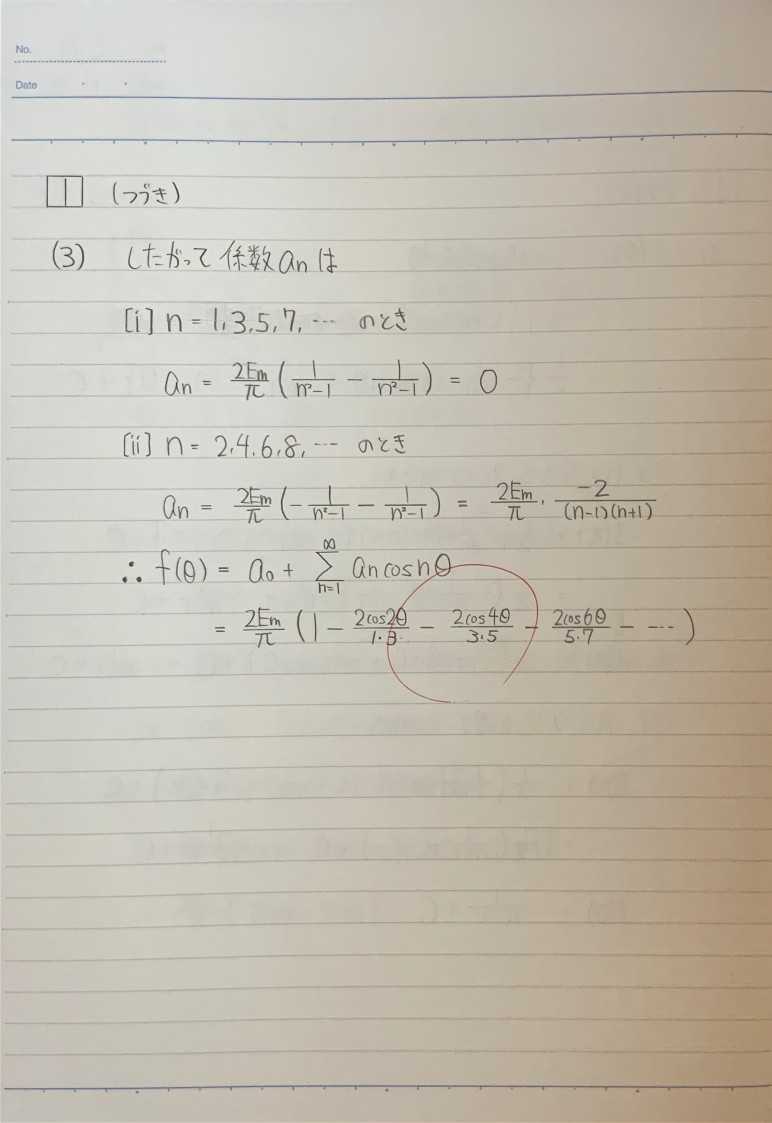 No.
Date
1 (つづき)
(3) したがって係数anは
[i] n = 1, 3, 5, 7, … のとき
an = 2Em/π (1/(n²-1) - 1/(n²-1)) = 0
[ii] n = 2, 4, 6, 8, … のとき
an = 2Em/π (-1/(n²-1) - 1/(n²-1)) = 2Em/π · -2/((n-1)(n+1))
∴ f(θ) = a₀ + ∑_{n=1}^{∞} an cos nθ
= 2Em/π (1 - 2cos2θ/1·3 - 2cos4θ/3·5 - 2cos6θ/5·7 - …)